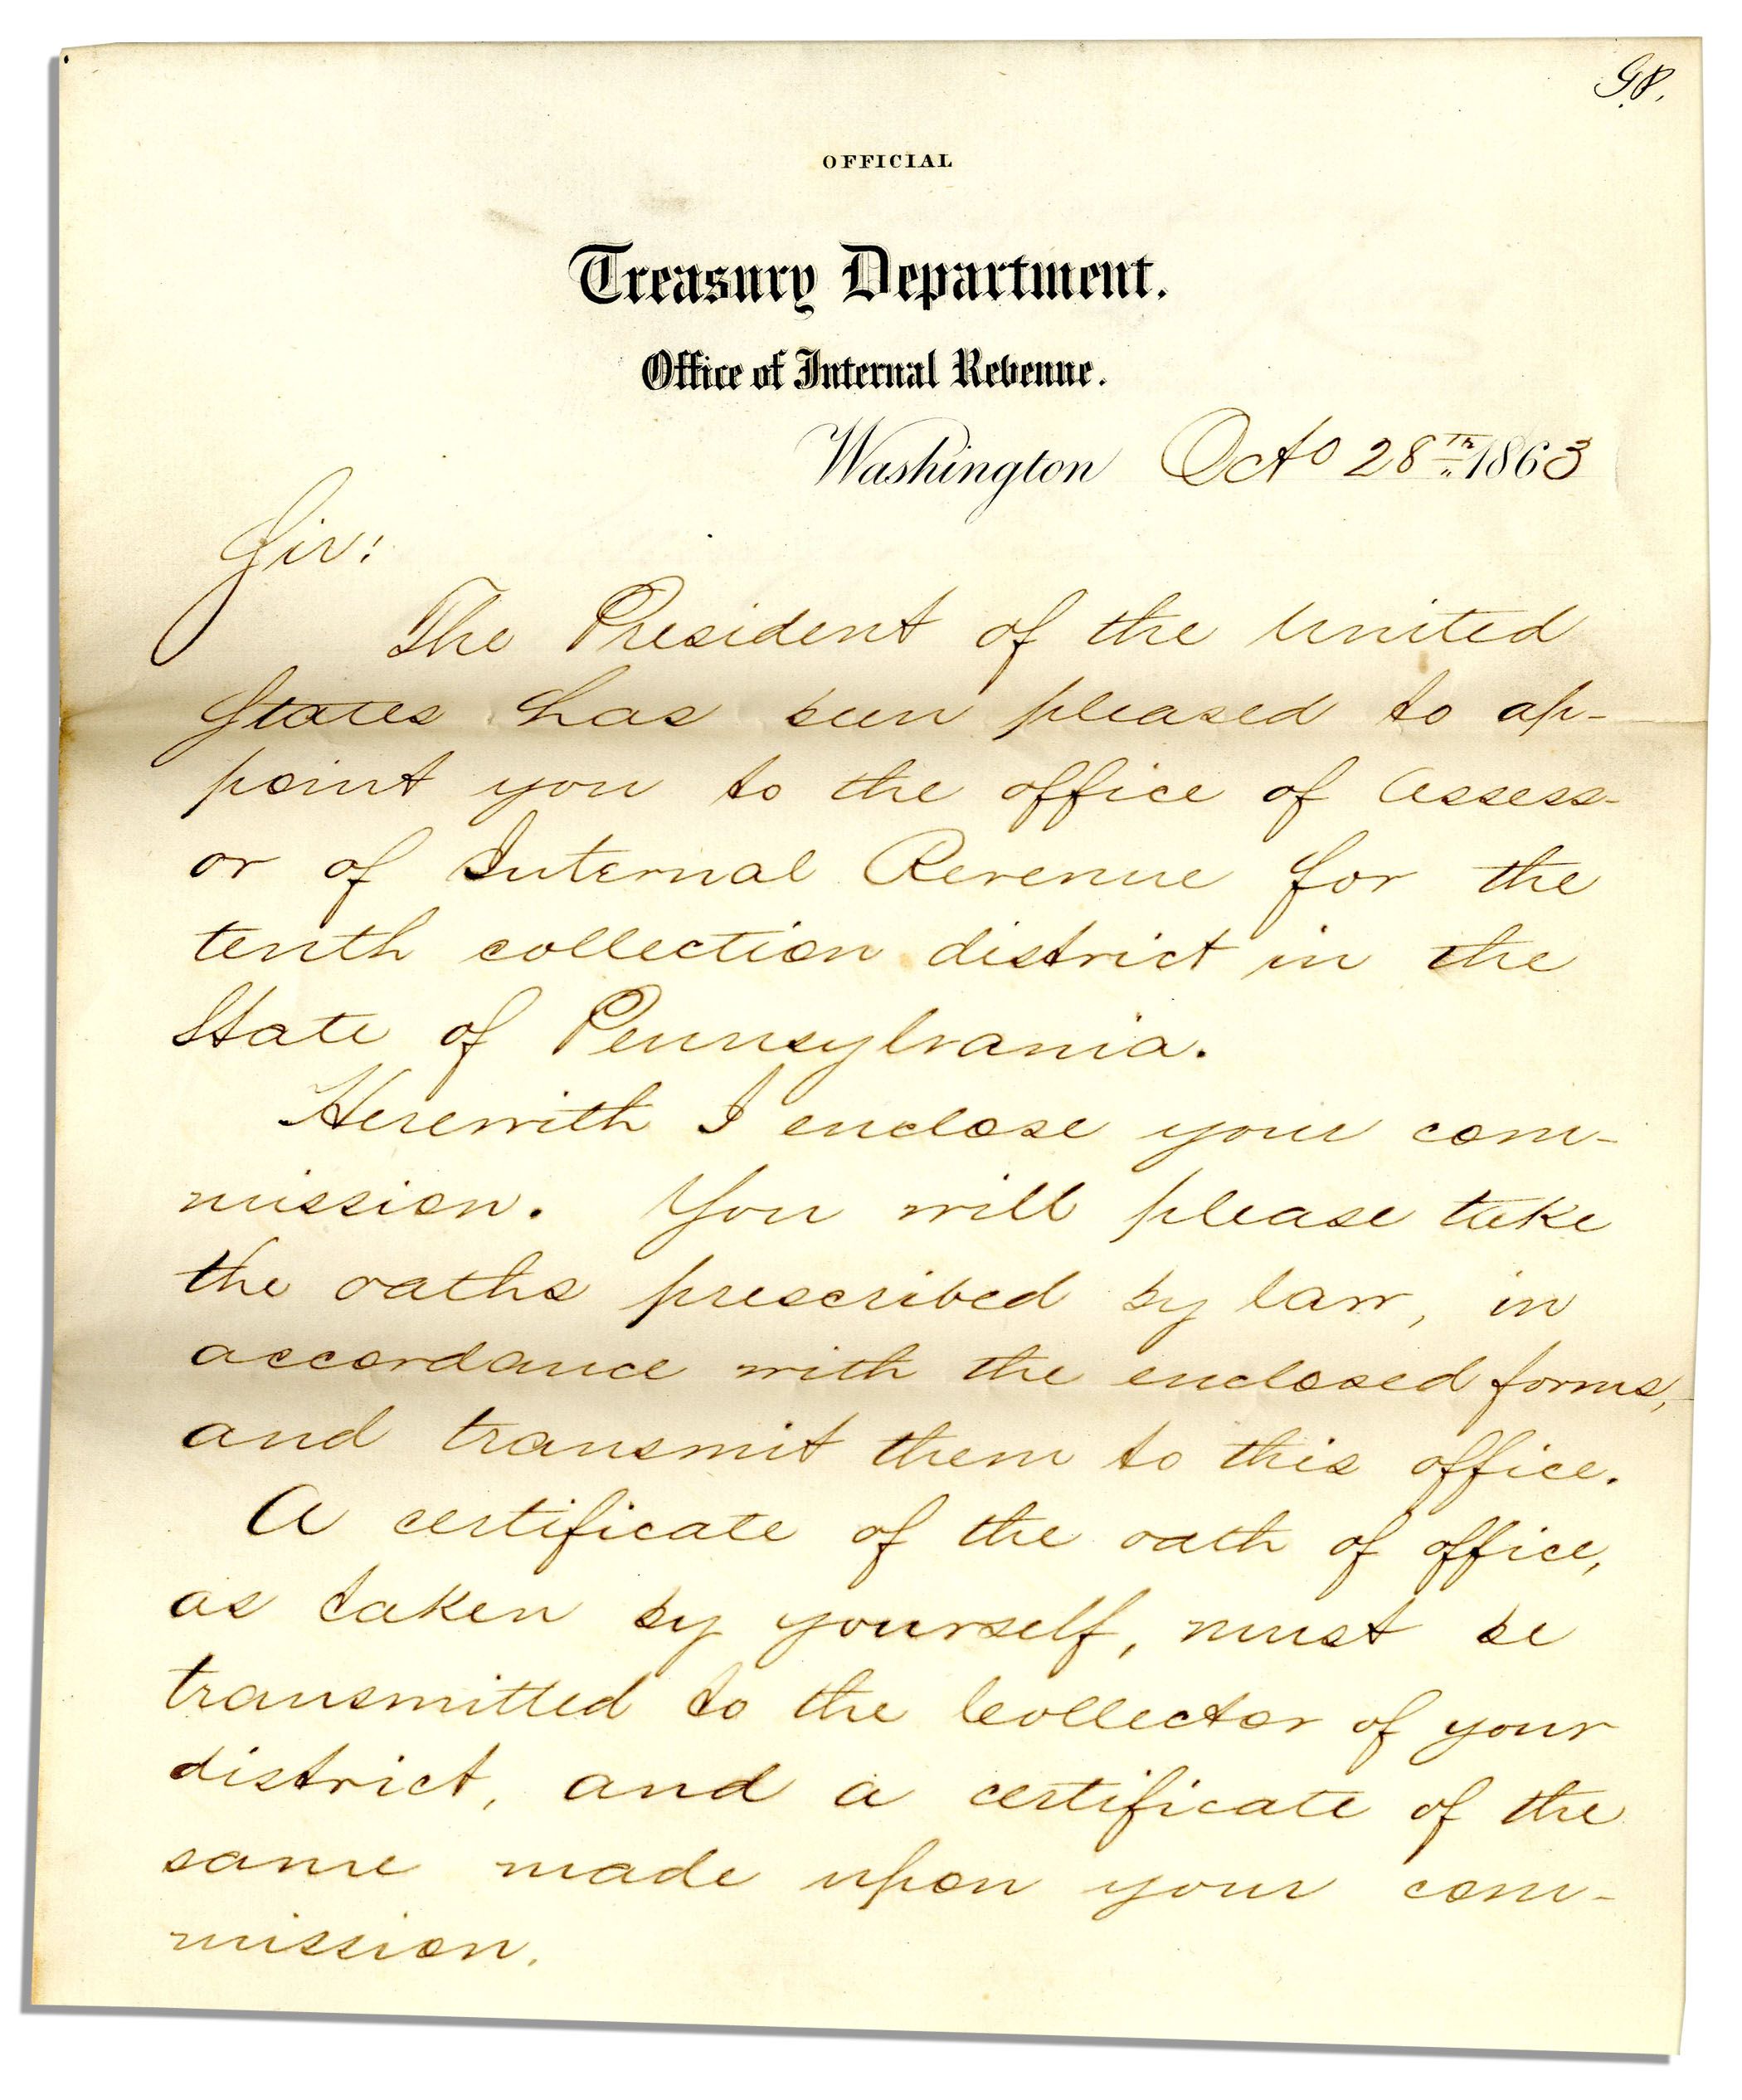 G.P.
OFFICIAL
Treasury Department.
Office of Internal Revenue.
Washington Octo 28th 1863
Sir:
The President of the United
States has been pleased to ap-
point you to the office of Assess-
or of Internal Revenue for the
tenth collection district in the
State of Pennsylvania.
Herewith I enclose your com-
mission. You will please take
the oaths prescribed by law, in
accordance with the enclosed forms,
and transmit them to this office.
A certificate of the oath of office,
as taken by yourself, must be
transmitted to the Collector of your
district, and a certificate of the
same made upon your com-
mission.